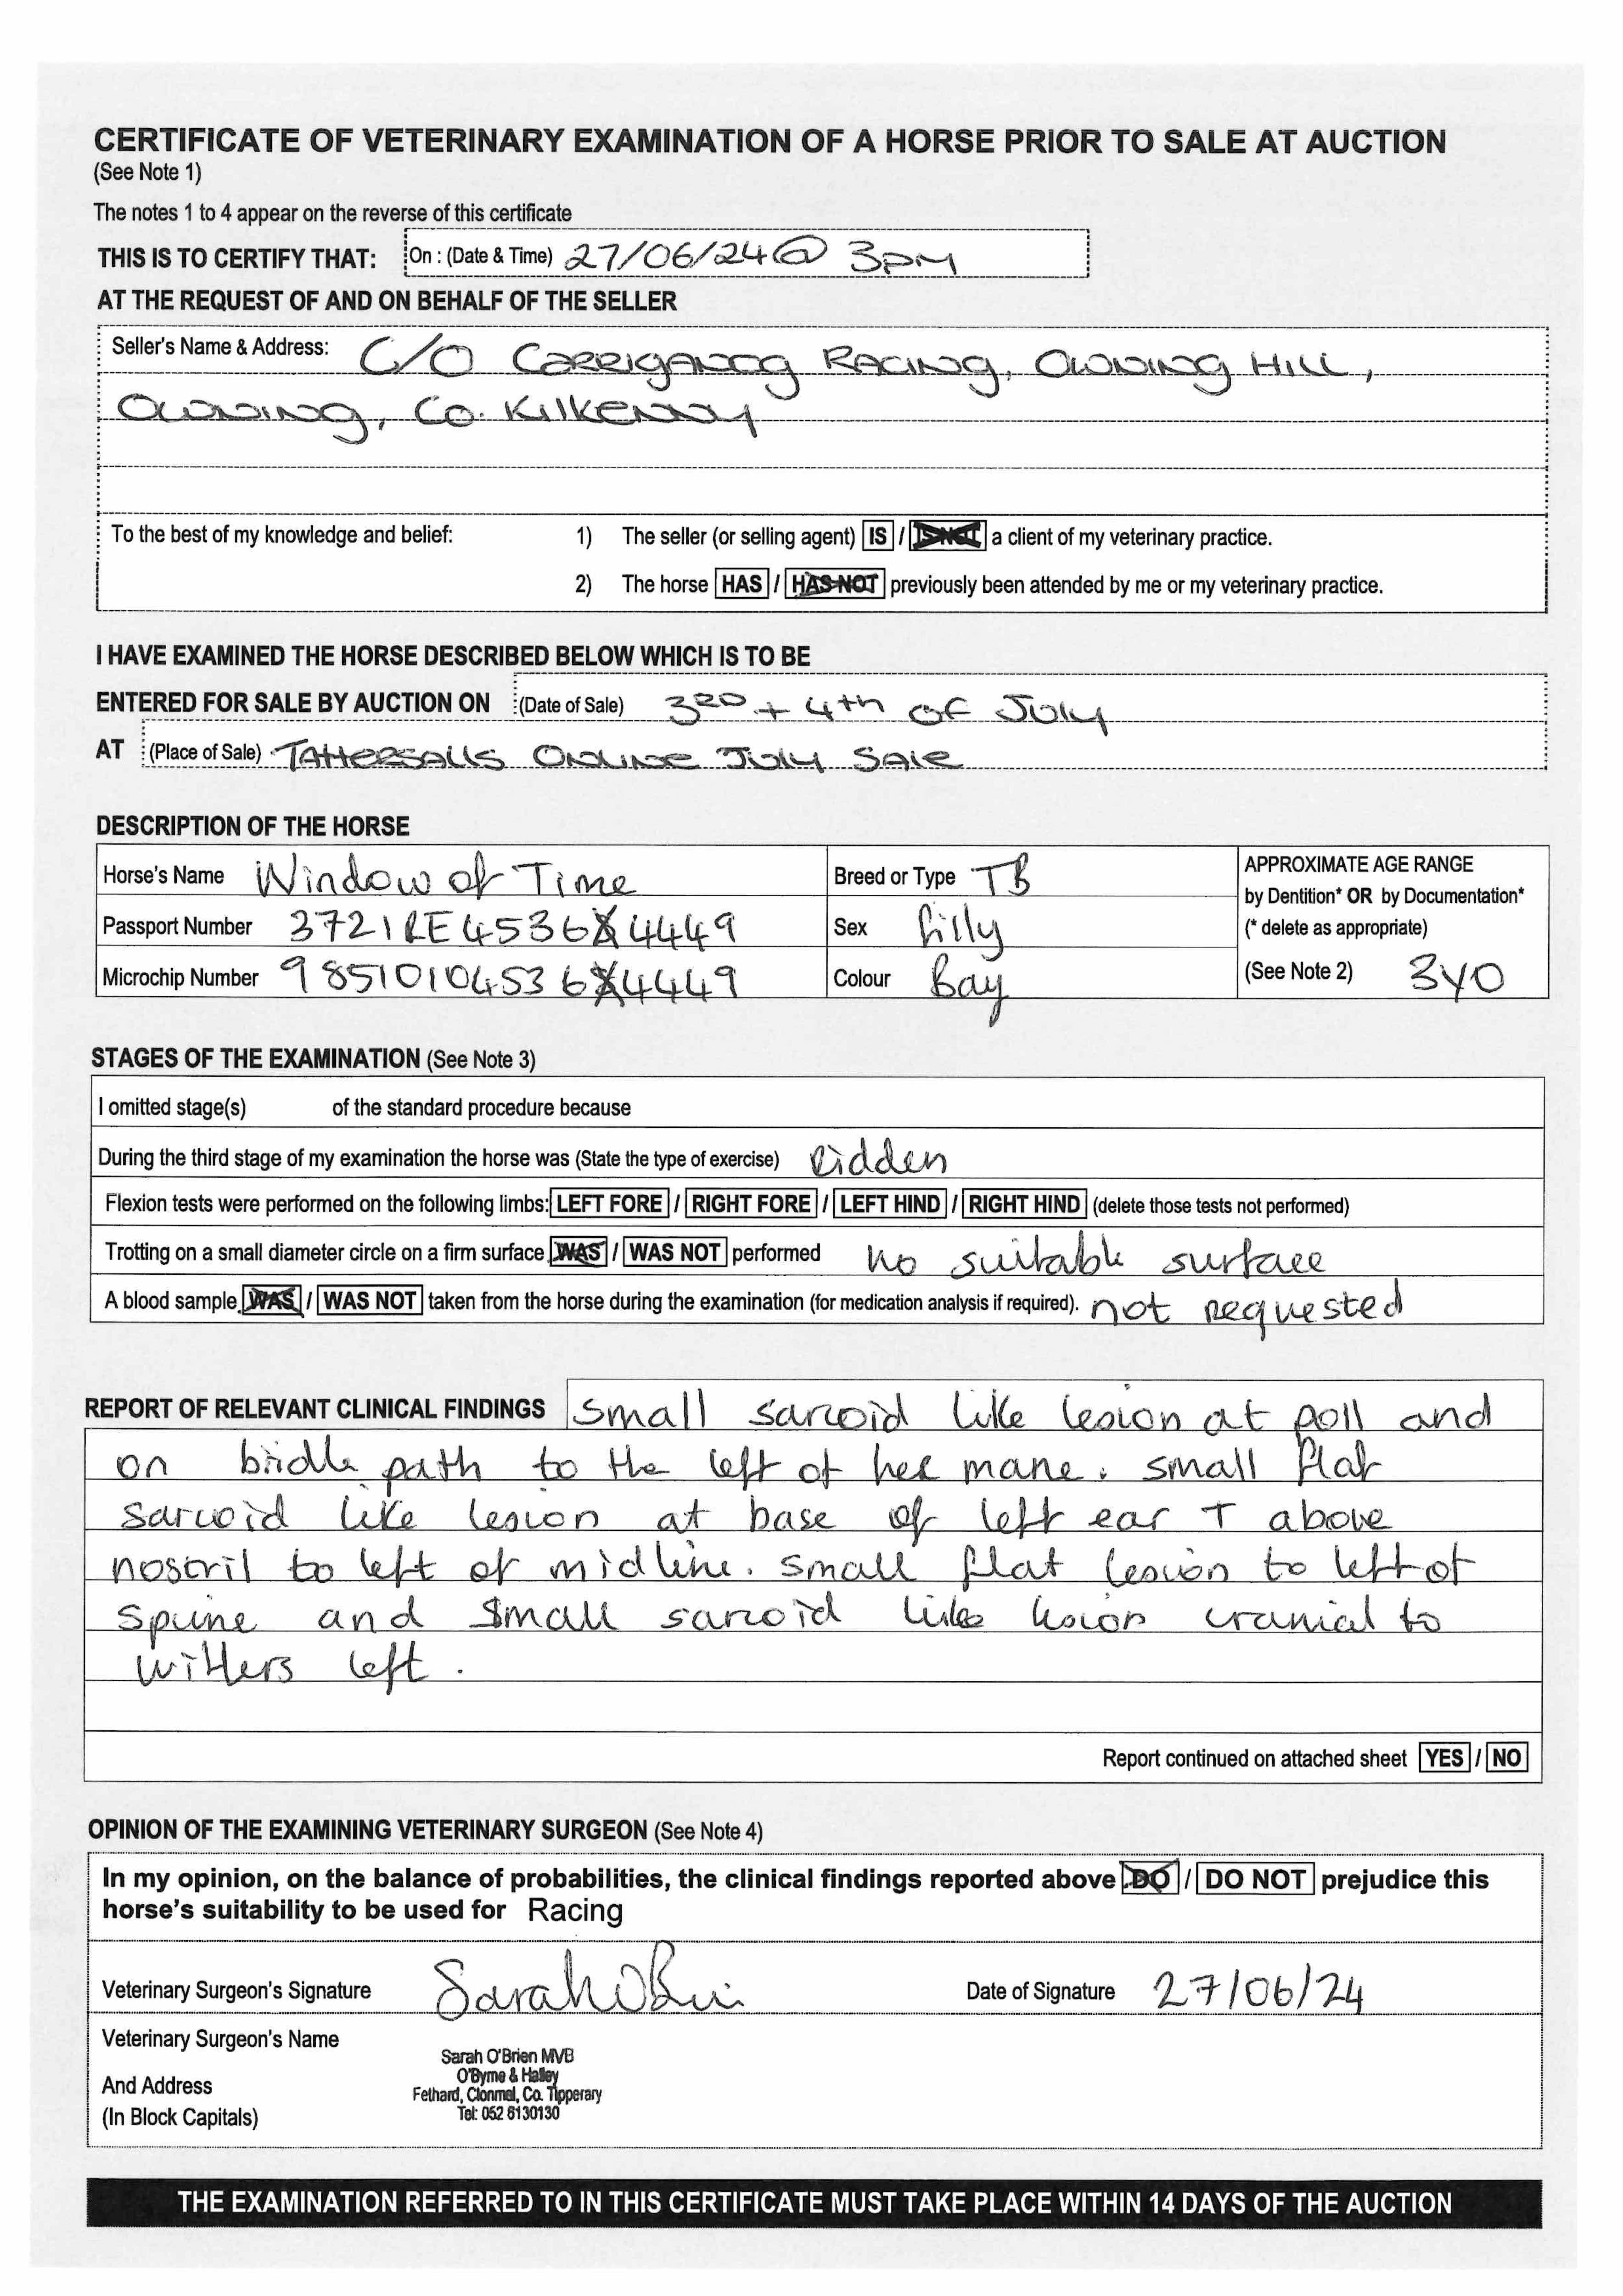 CERTIFICATE OF VETERINARY EXAMINATION OF A HORSE PRIOR TO SALE AT AUCTION
(See Note 1)
The notes 1 to 4 appear on the reverse of this certificate
THIS IS TO CERTIFY THAT: On : (Date & Time) 27/06/24 @ 3PM
AT THE REQUEST OF AND ON BEHALF OF THE SELLER
Seller's Name & Address: C/O Carriganóg Racing, Owning Hill,
Owning, Co. Kilkenny
To the best of my knowledge and belief: 1) The seller (or selling agent) IS / IS NOT a client of my veterinary practice.
2) The horse HAS / HAS NOT previously been attended by me or my veterinary practice.
I HAVE EXAMINED THE HORSE DESCRIBED BELOW WHICH IS TO BE
ENTERED FOR SALE BY AUCTION ON (Date of Sale) 3RD + 4th of July
AT (Place of Sale) Tattersalls Online July Sale
DESCRIPTION OF THE HORSE
Horse's Name Window of Time Breed or Type TB APPROXIMATE AGE RANGE
by Dentition* OR by Documentation*
Passport Number 372IRE45364449 Sex Filly (* delete as appropriate)
Microchip Number 985101045364449 Colour Bay (See Note 2) 3YO
STAGES OF THE EXAMINATION (See Note 3)
I omitted stage(s) of the standard procedure because
During the third stage of my examination the horse was (State the type of exercise) Ridden
Flexion tests were performed on the following limbs: LEFT FORE / RIGHT FORE / LEFT HIND / RIGHT HIND (delete those tests not performed)
Trotting on a small diameter circle on a firm surface WAS / WAS NOT performed no suitable surface
A blood sample WAS / WAS NOT taken from the horse during the examination (for medication analysis if required). not requested
REPORT OF RELEVANT CLINICAL FINDINGS small sarcoid like lesion at poll and
on bridle path to the left of her mane. small flat
sarcoid like lesion at base of left ear + above
nostril to left of midline. small flat lesion to left of
spine and small sarcoid like lesion cranial to
withers left.
Report continued on attached sheet YES / NO
OPINION OF THE EXAMINING VETERINARY SURGEON (See Note 4)
In my opinion, on the balance of probabilities, the clinical findings reported above DO / DO NOT prejudice this
horse's suitability to be used for Racing
Veterinary Surgeon's Signature Sarah O'Brien Date of Signature 27/06/24
Veterinary Surgeon's Name
Sarah O'Brien MVB
O'Byrne & Halley
And Address
Fethard, Clonmel, Co. Tipperary
(In Block Capitals) Tel: 052 6130130
THE EXAMINATION REFERRED TO IN THIS CERTIFICATE MUST TAKE PLACE WITHIN 14 DAYS OF THE AUCTION